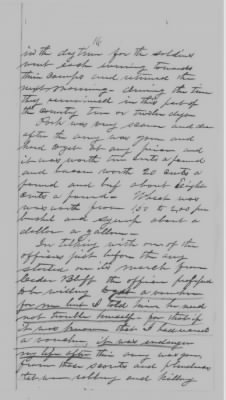 16
in the day time for the soldiers
went each evening towards
their camps and returned the
next morning during the time
they remained in this part of
the country ten or twelve days
Pork was very scarce and dear
after the army was gone and
hard to get at any price and
it was worth ten cents a pound
and bacon worth 20 cents a
pound and beef about Eight
cents a pound. Wheat was
was worth from 1.50 to 2.00 per
bushel and syrup about a
dollar a gallon
In talking with one of the
officers just before the army
started on its march from
Cedar Bluff the officer proffered
a voucher
for me but I told him he need
not trouble himself for that if
it was known that I had
a voucher, it would endanger
my life after this army was gone
From these scouts and
robbing and killing